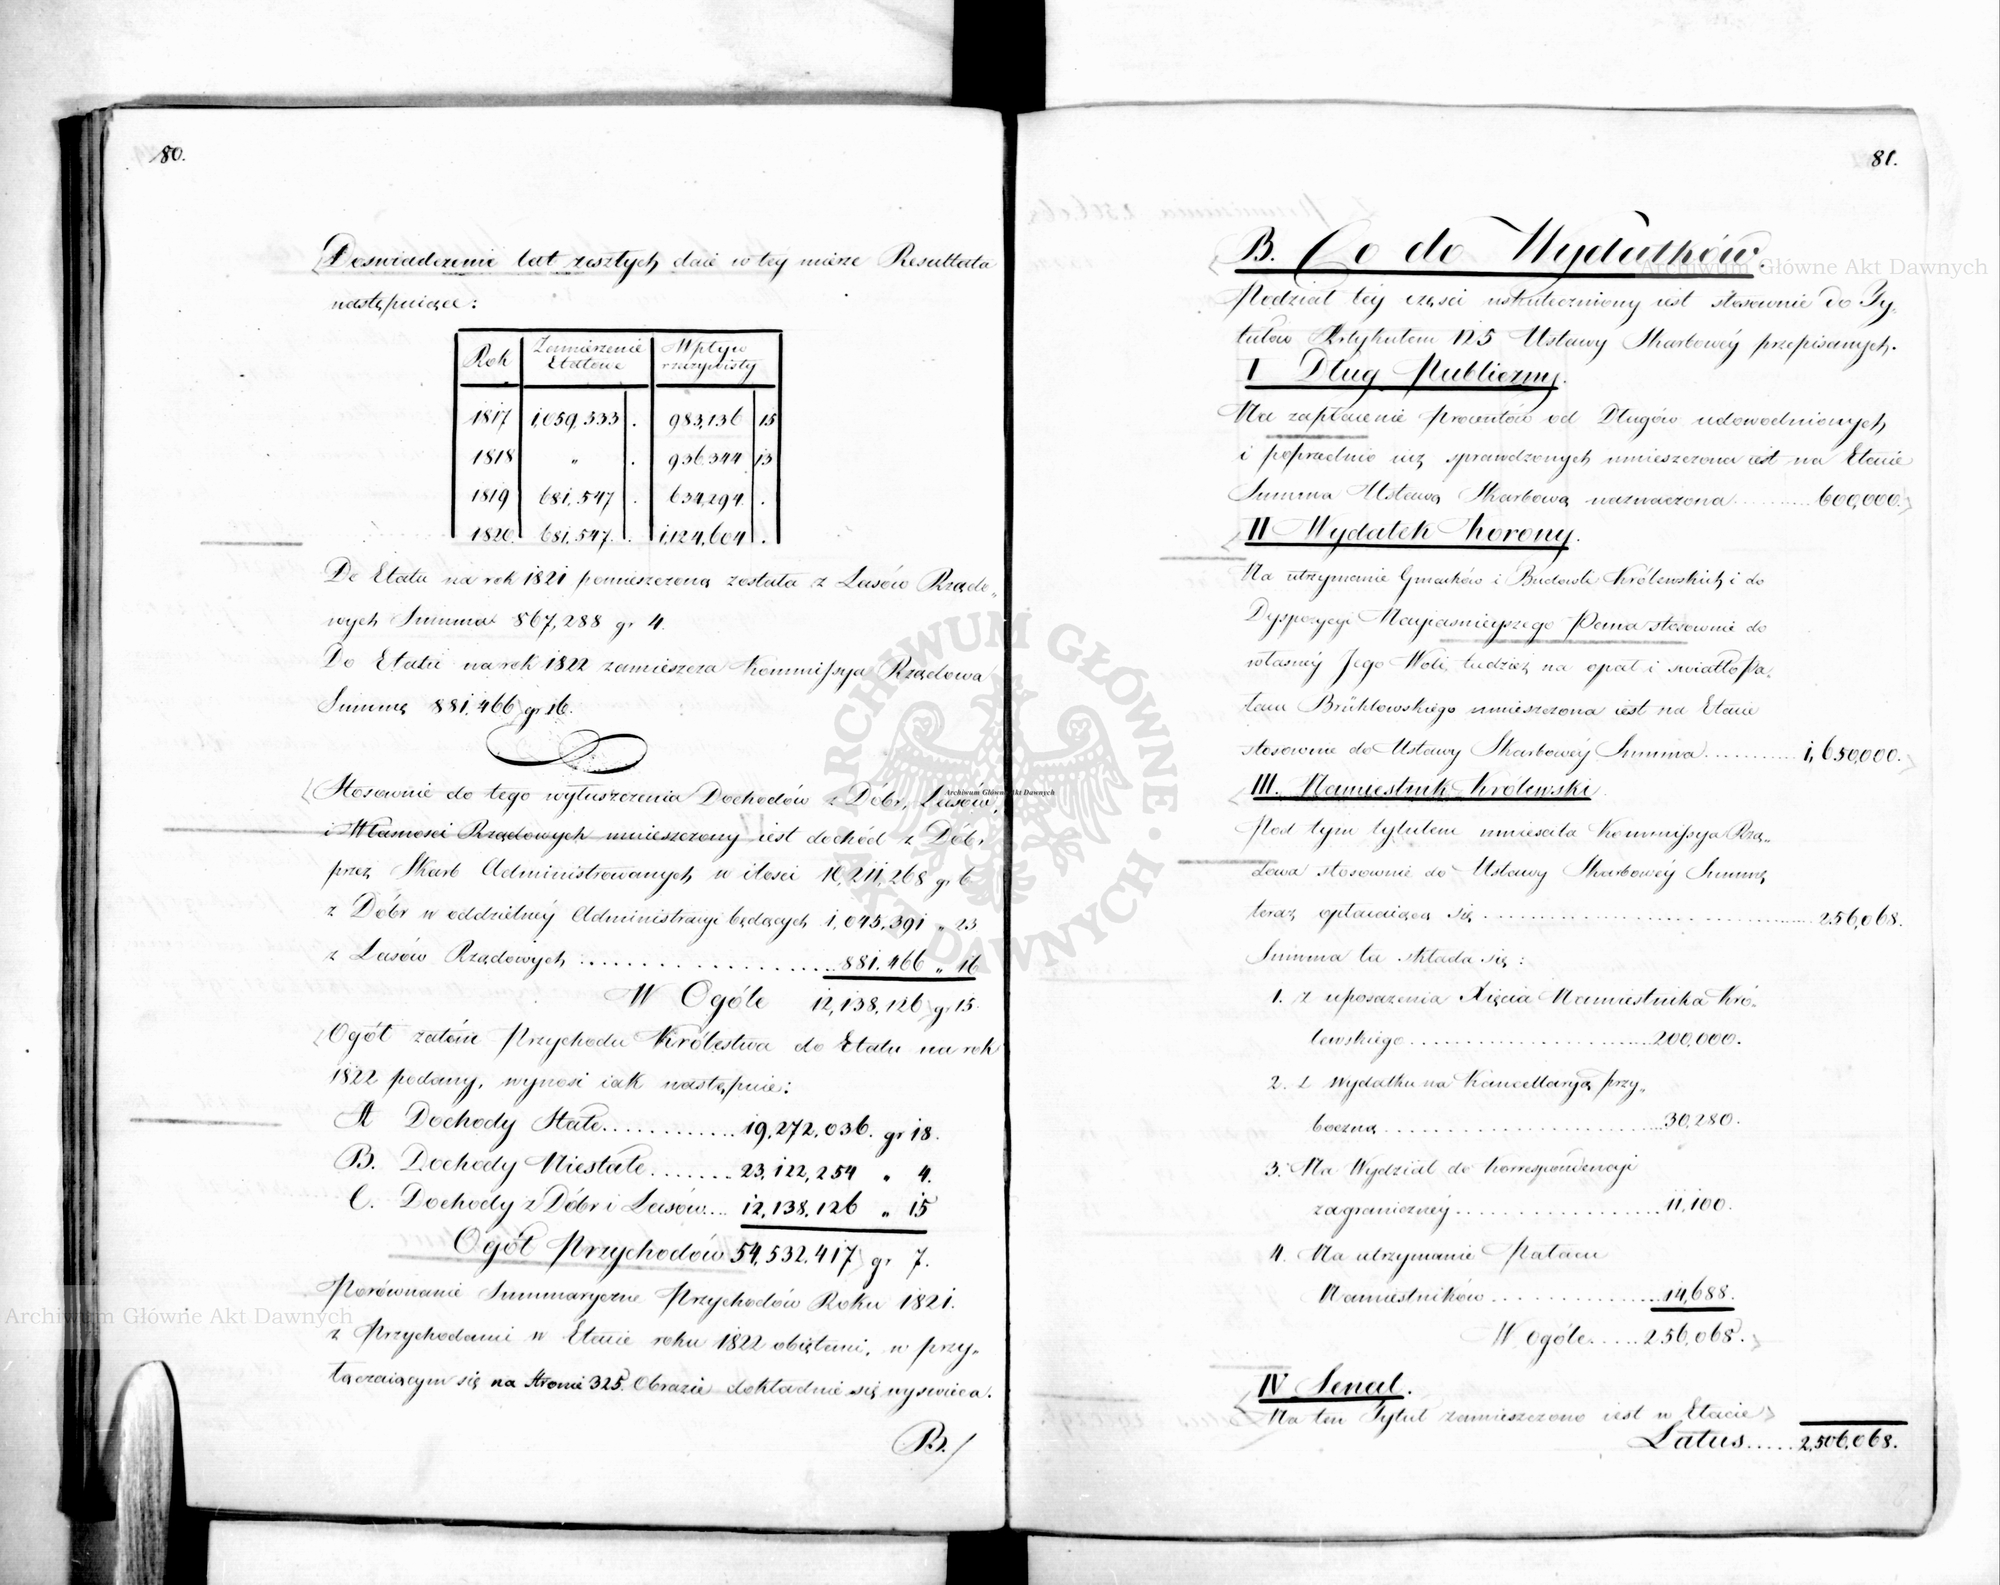 80.
Doswiadczenie lat zeszłych daie w tey mierze Resultata
następuiące:
Rok Zamierzenie Etatowe Wpływ rzeczywisty
1817 1,059,533 . 983,136 15
1818 „ . 936,344 13
1819 681,547 . 634,294 .
1820. 681,547. . 1,124,604 .
Do Etatu na rok 1821 pomieszczoną została z Lasów Rządo„
wych Summa 867,288 gr 4.
Do Etatu na rok 1822 zamieszcza Kommissya Rządowa
Summę 881,466 gr 16.
Stosownie do tego wyłuszczenia Dochodów z Dóbr, Lasów,
i Własności Rządowych umieszczony iest dochód z Dóbr
przez Skarb Administrowanych w ilości 10,211,268 gr 6
z Dóbr w oddzielney Administracyi będących 1,045,391 „ 23
z Lasów Rządowych ........ 881,466 „ 16
W Ogóle 12,138,126 gr 15.
Ogół zatém Przychodu Królestwa do Etatu na rok
1822 podany, wynosi iak następuie:
A Dochody Stałe ........ 19,272,036. gr 18.
B. Dochody Niestałe ....... 23,122,254 „ 4.
C. Dochody z Dóbr i Lasów ... 12,138,126 „ 15
Ogół Przychodów 54,532,417 gr 7.
Porównanie Summaryczne Przychodów Roku 1821.
z Przychodami w Etacie roku 1822 obiętemi, w przy„
łączaiącym się na Stronie 325. Obrazie dokładnie się wyswieca.
B./
81.
B. Co do Wydatków.
Podział tey części uskuteczniony iest stosownie do Ty„
tułów Artykułem 125 Ustawy Skarbowéy przepisanych.
I Dług Publiczny.
Na zapłacenie procentów od Długów udowodnionych
i poprzednio iuż sprawdzonych umieszczona iest na Etacie
Summa Ustawą Skarbową naznaczona ........ 600,000.
II Wydatek Korony.
Na utrzymanie Gmachów i Budowli Królewskich i do
Dyspozycyi Nayiaśnieyszego Pana stosownie do
własnéy Jego Woli, tudzież na opał i swiatło Pa„
łacu Brühlowskiego umieszczona iest na Etacie
stosownie do Ustawy Skarbowéy Summa .......... 1,650,000.
III. Namiestnik Królewski.
Pod tym tytułem umieściła Kommissya Rzą„
dowa stosownie do Ustawy Skarbowéy Summę
teraz opłacaiącą się ........ 256,068.
Summa ta składa się:
1. z uposażenia Xięcia Namiestnika Kró„
lewskiego ........ 200,000.
2. z Wydatku na Kancellaryą przy„
boczną ........ 30,280.
3. Na Wydział do Korrespondencyi
zagraniczney ........ 11,100.
4. Na utrzymanie Pałacu
Namiestników ........ 14,688.
W Ogóle ..... 256,068.
IV Senat.
Na ten Tytuł zamieszczono iest w Etacie
Latus ..... 2,506,068.
Archiwum Główne Akt Dawnych
Archiwum Główne Akt Dawnych
Archiwum Główne Akt Dawnych
ARCHIWUM GŁÓWNE AKT DAWNYCH